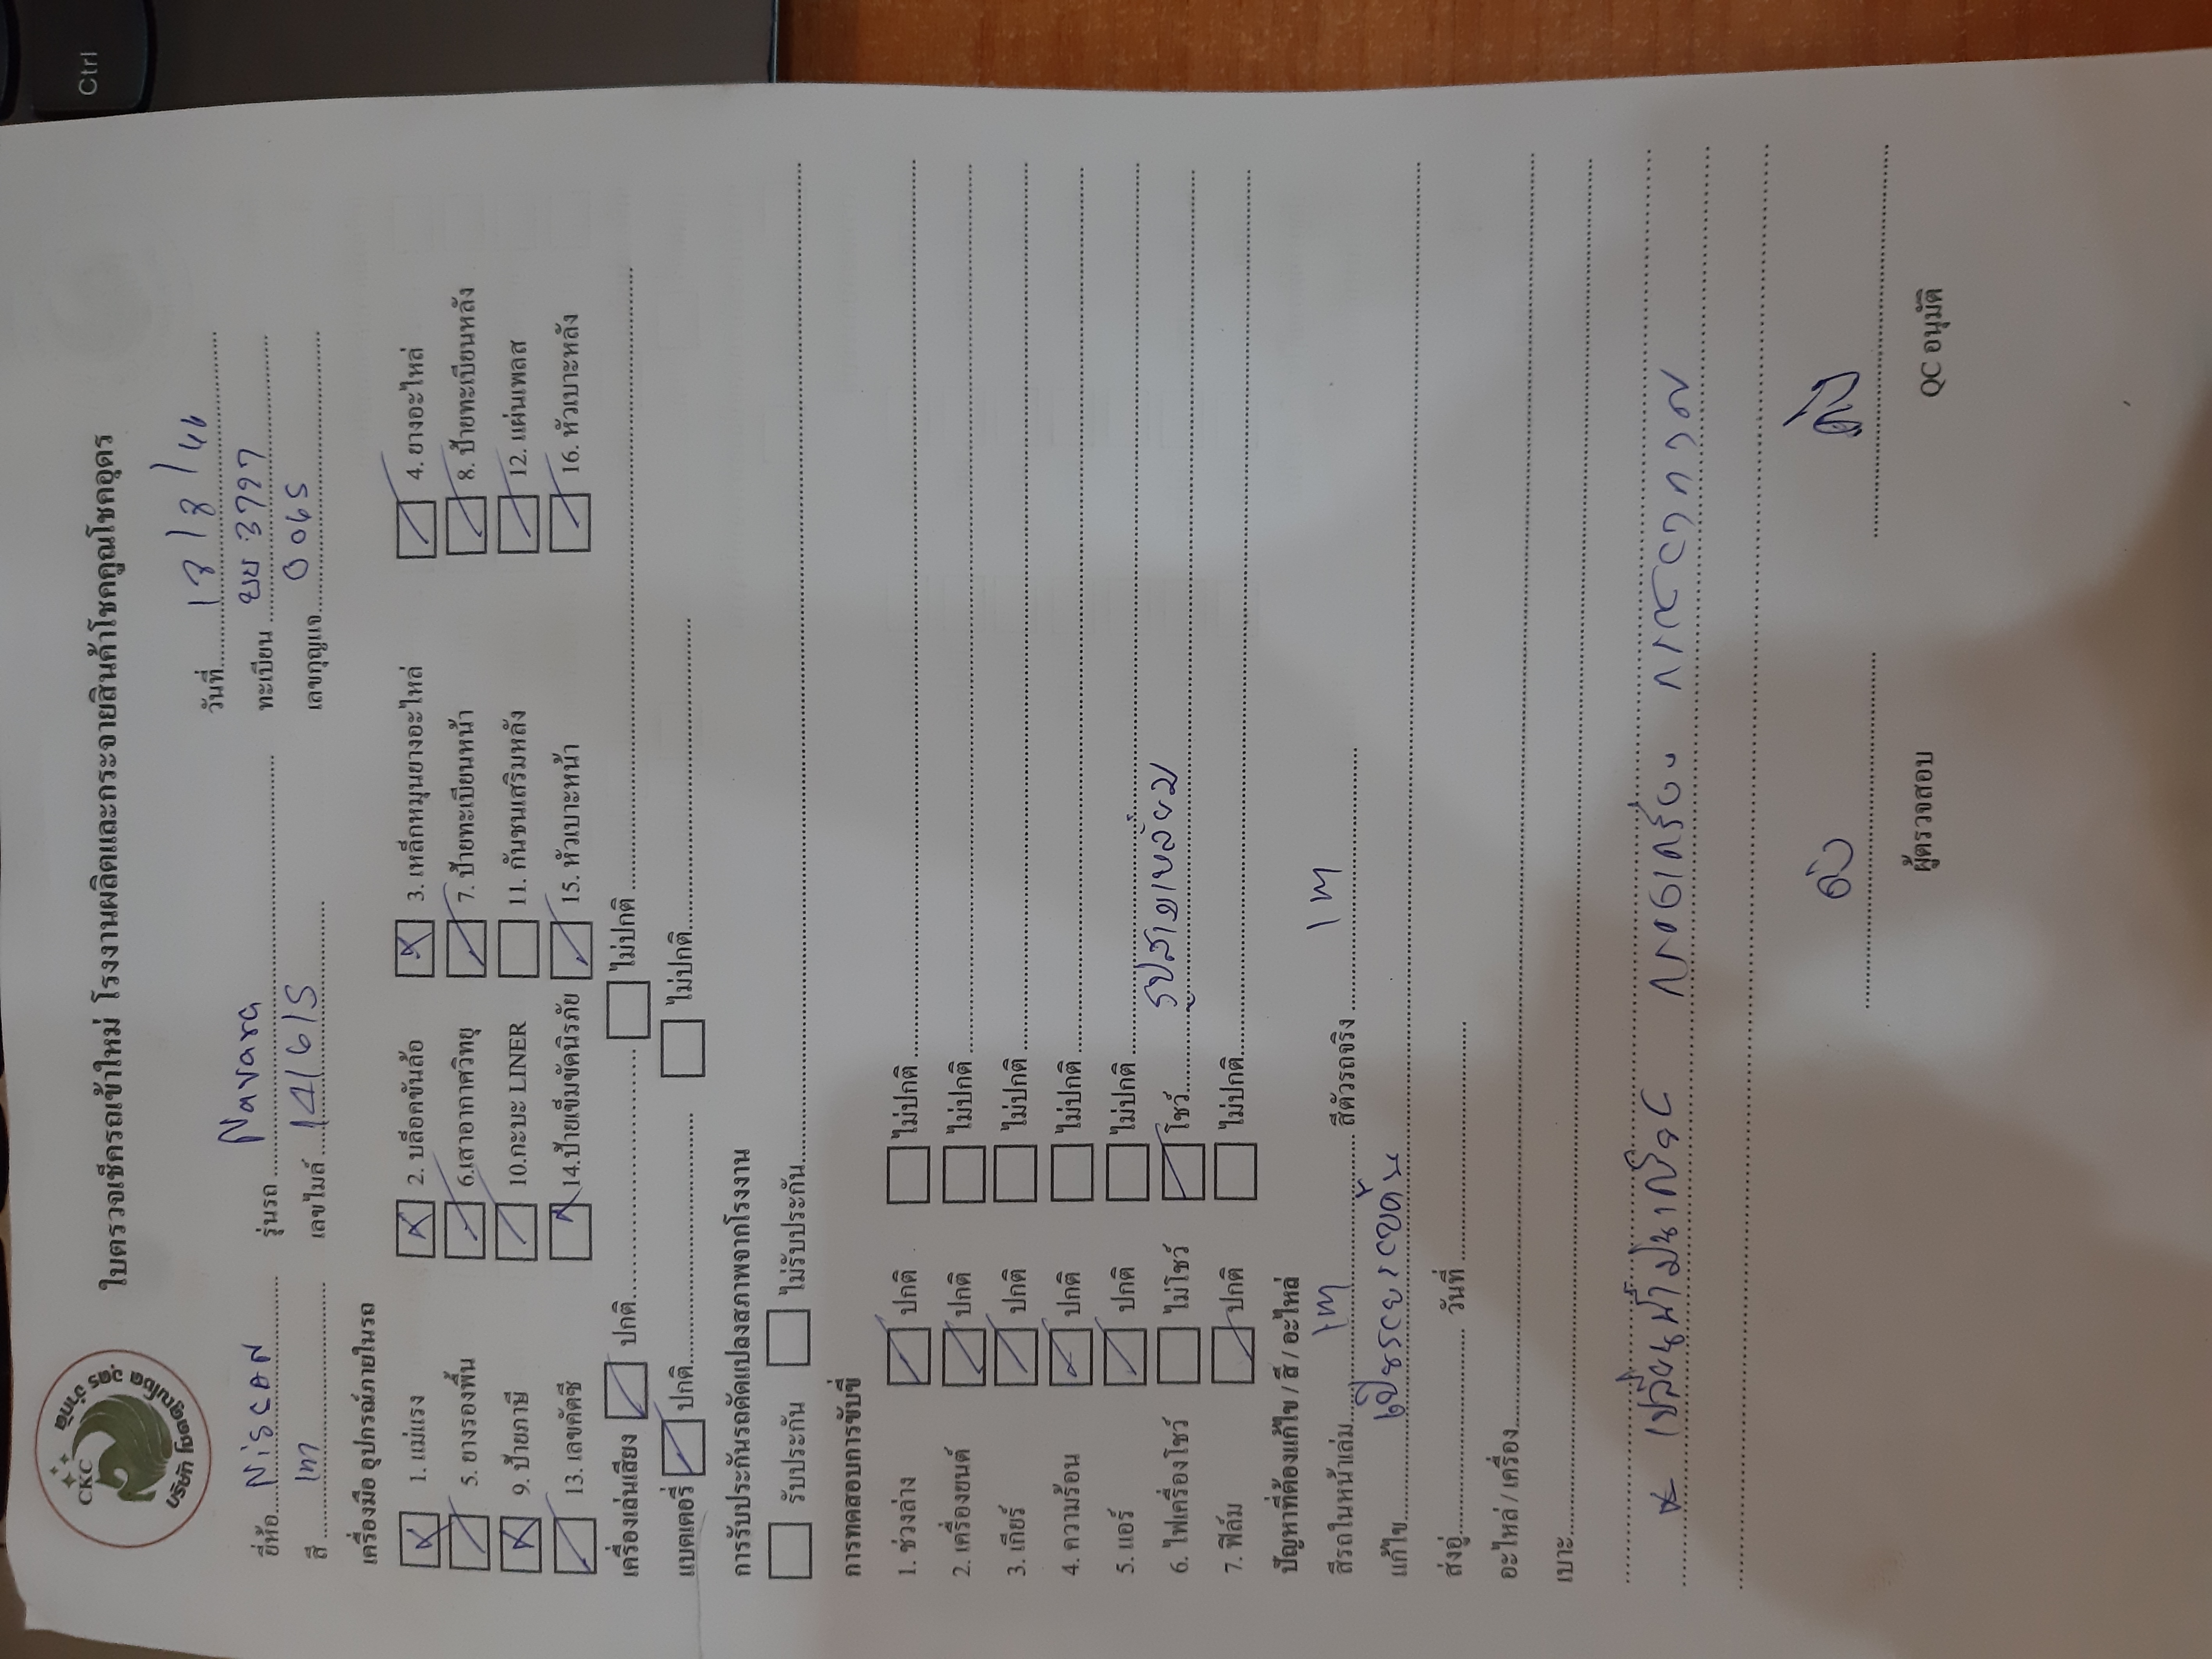 Ctrl
CKC
บริษัท โชคคูณโชค อุดร จำกัด
ใบตรวจเช็ครถเข้าใหม่ โรงงานผลิตและกระจายสินค้าโชคคูณโชคอุดร
วันที่ 13/3/66
ยี่ห้อ Niscan รุ่นรถ Navara ทะเบียน ขย 3797
สี เทา เลขไมล์ 141615 เลขกุญแจ 0065
เครื่องมือ อุปกรณ์ภายในรถ
1. แม่แรง 2. บล็อกขันล้อ 3. เหล็กหมุนยางอะไหล่ 4. ยางอะไหล่
5. ยางรองพื้น 6.เสาอากาศวิทยุ 7. ป้ายทะเบียนหน้า 8. ป้ายทะเบียนหลัง
9. ป้ายภาษี 10.กะบะ LINER 11. กันชนเสริมหลัง 12. แผ่นเพลส
13. เลขคัตซี 14.ป้ายเข็มขัดนิรภัย 15. หัวเบาะหน้า 16. หัวเบาะหลัง
เครื่องเล่นเสียง ปกติ ไม่ปกติ
แบตเตอรี่ ปกติ ไม่ปกติ
การรับประกันรถดัดแปลงสภาพจากโรงงาน
รับประกัน ไม่รับประกัน
การทดสอบการขับขี่
1. ช่วงล่าง ปกติ ไม่ปกติ
2. เครื่องยนต์ ปกติ ไม่ปกติ
3. เกียร์ ปกติ ไม่ปกติ
4. ความร้อน ปกติ ไม่ปกติ
5. แอร์ ปกติ ไม่ปกติ
6. ไฟเครื่องโชว์ ไม่โชว์ โชว์ รูปสามเหลี่ยม
7. ฟิล์ม ปกติ ไม่ปกติ
ปัญหาที่ต้องแก้ไข / สี / อะไหล่
สีรถในหน้าเล่ม เทา สีตัวรถจริง เทา
แก้ไข
ส่งอู่ วันที่
อะไหล่ / เครื่อง
เบาะ
เปลี่ยนน้ำมันเครื่อง กรองเครื่อง
ผู้ตรวจสอบ QC อนุมัติ